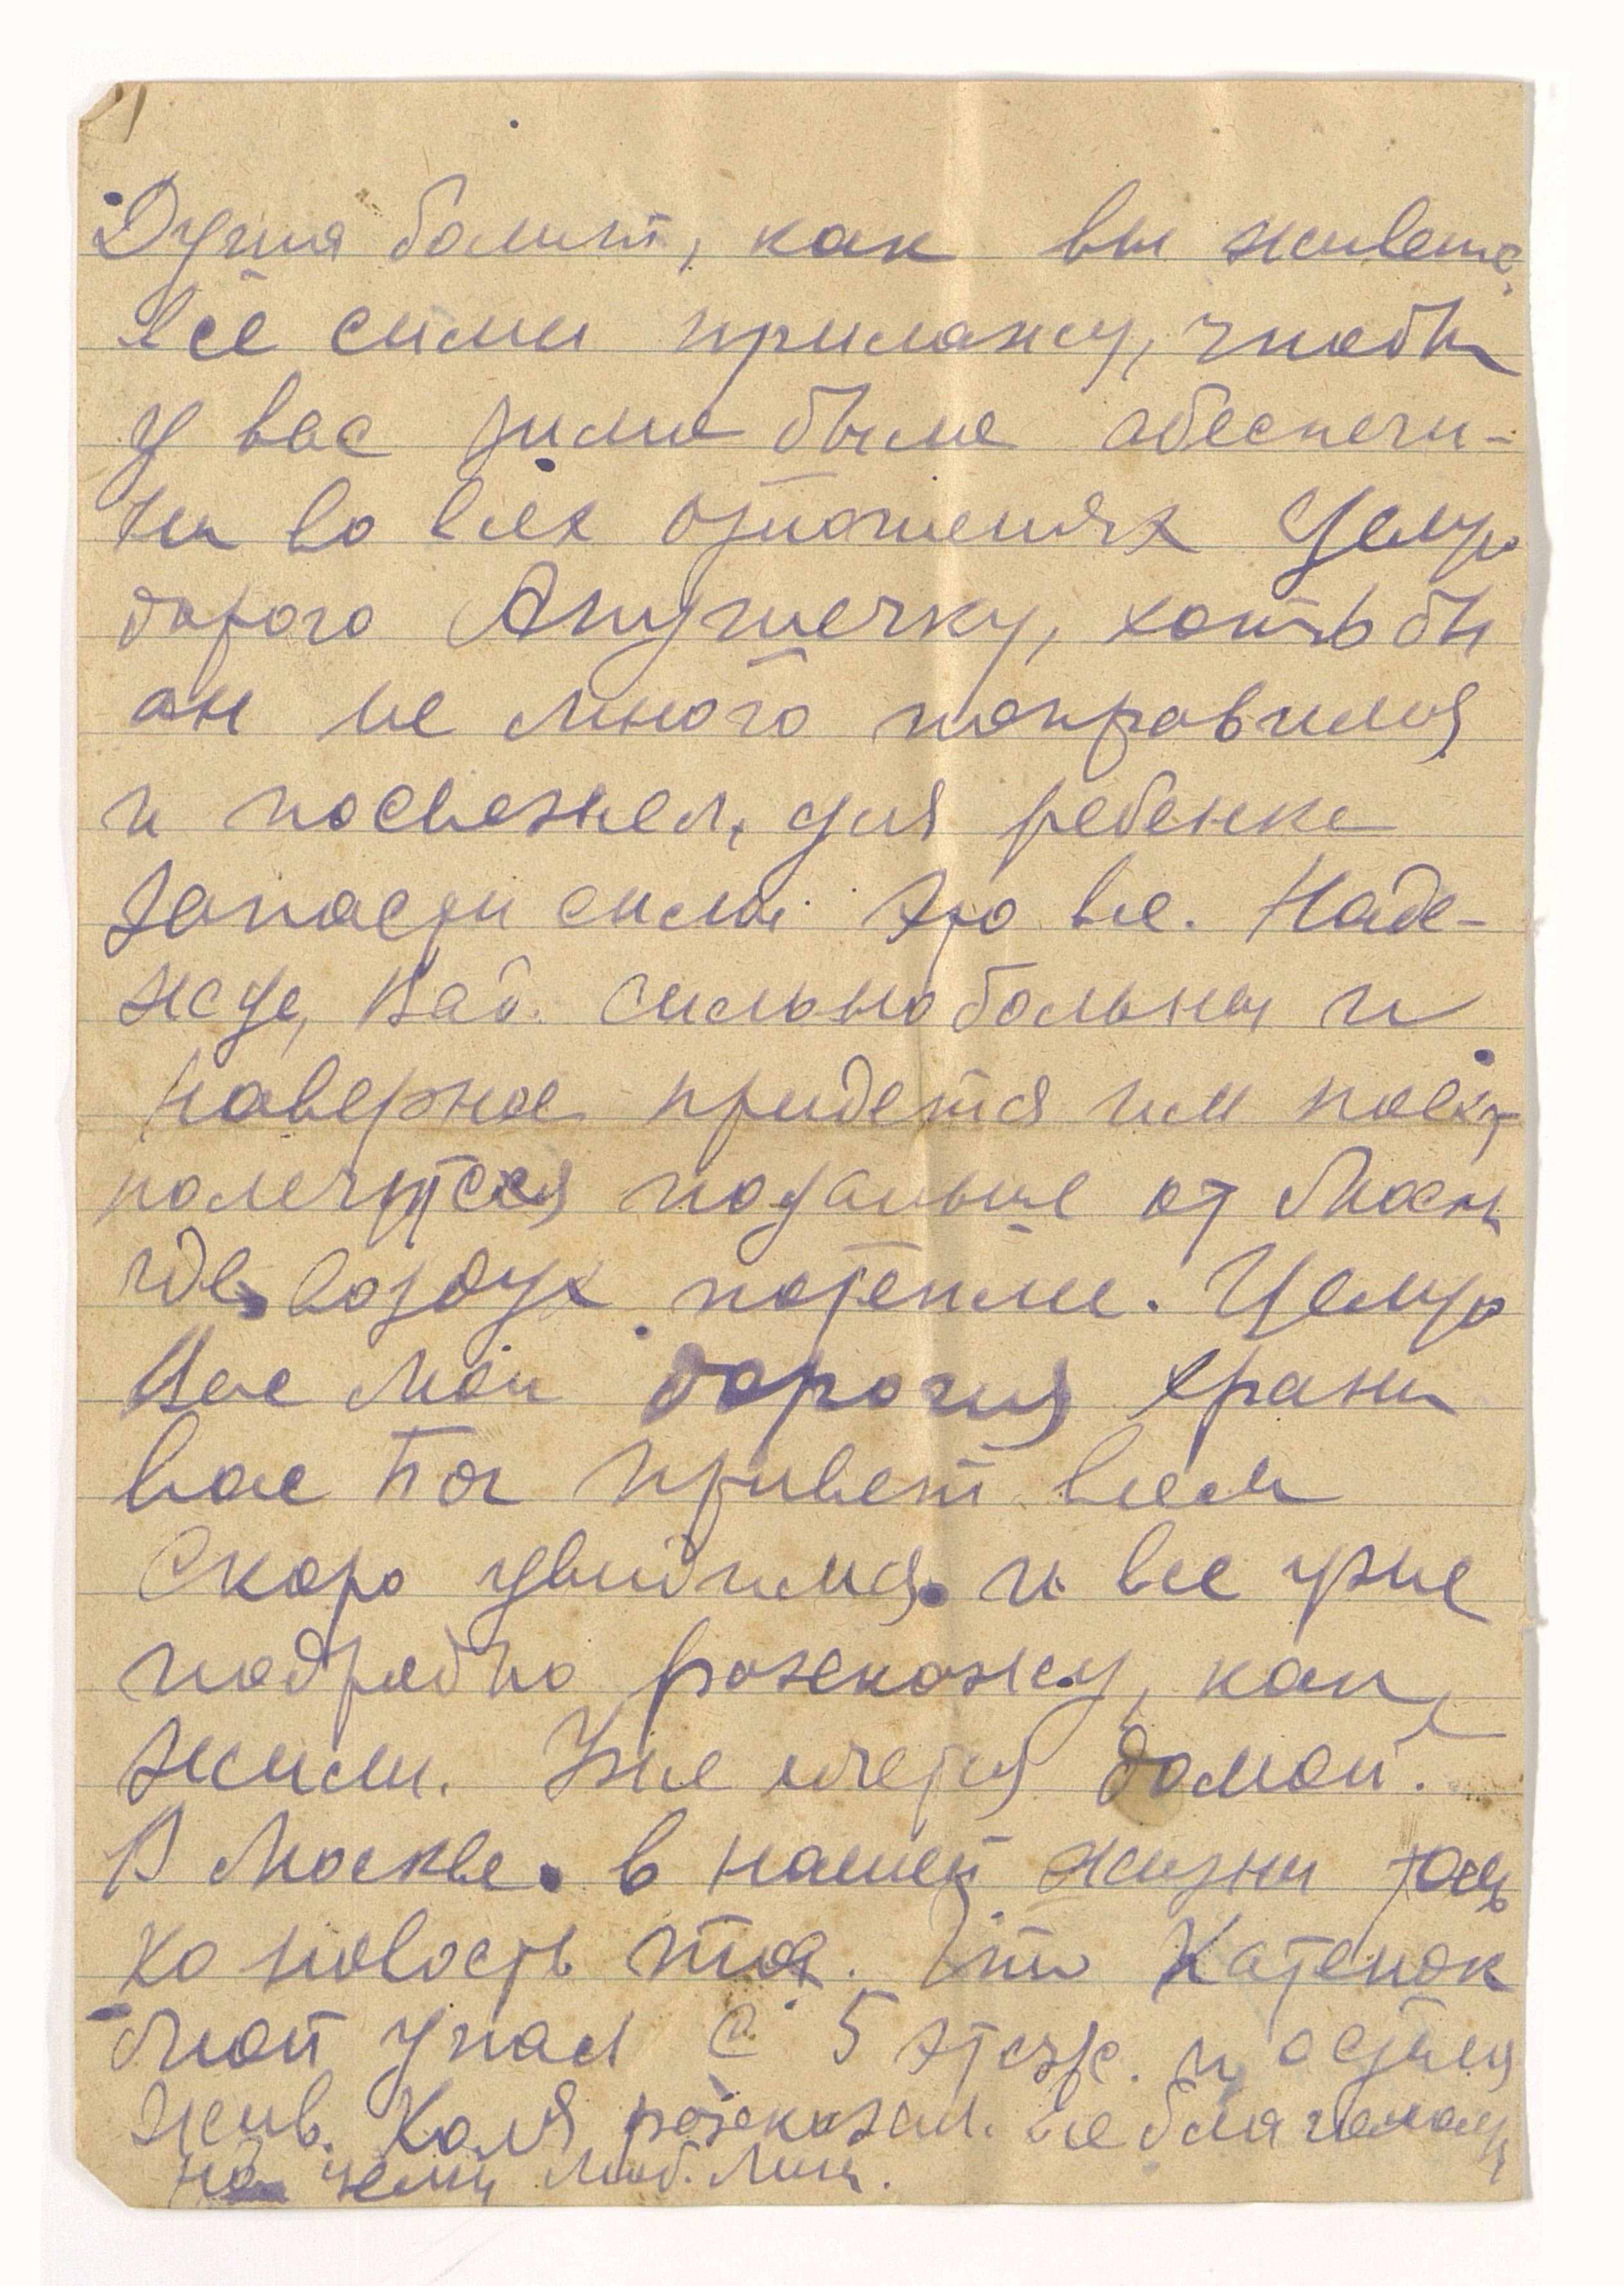 Душа болит, как вы живете,
все силы приложу, чтобы
у вас зима была обеспече-
на во всех отношениях Целую
дорого Апушечку, хоть бы
он не много поправился
и посвежел, для ребенка
запасти силы это все. Наде-
жда, Вад. сильно больны и
наверное придется им поех
полечится подальше от Москв
где воздух потеплее. Целую
Вас мои дорогия храни
вас Бог привет всем
Скоро увидимся. и все уже
подробно разскажу, как
жили. Уже хочется домой.
В Москве в нашей жизни толь
ко новость та. Что Катенок
мой упал с 5 этаж. и остался
жив. Коля разсказал. все благополуч
на чему Люб. Лиц.